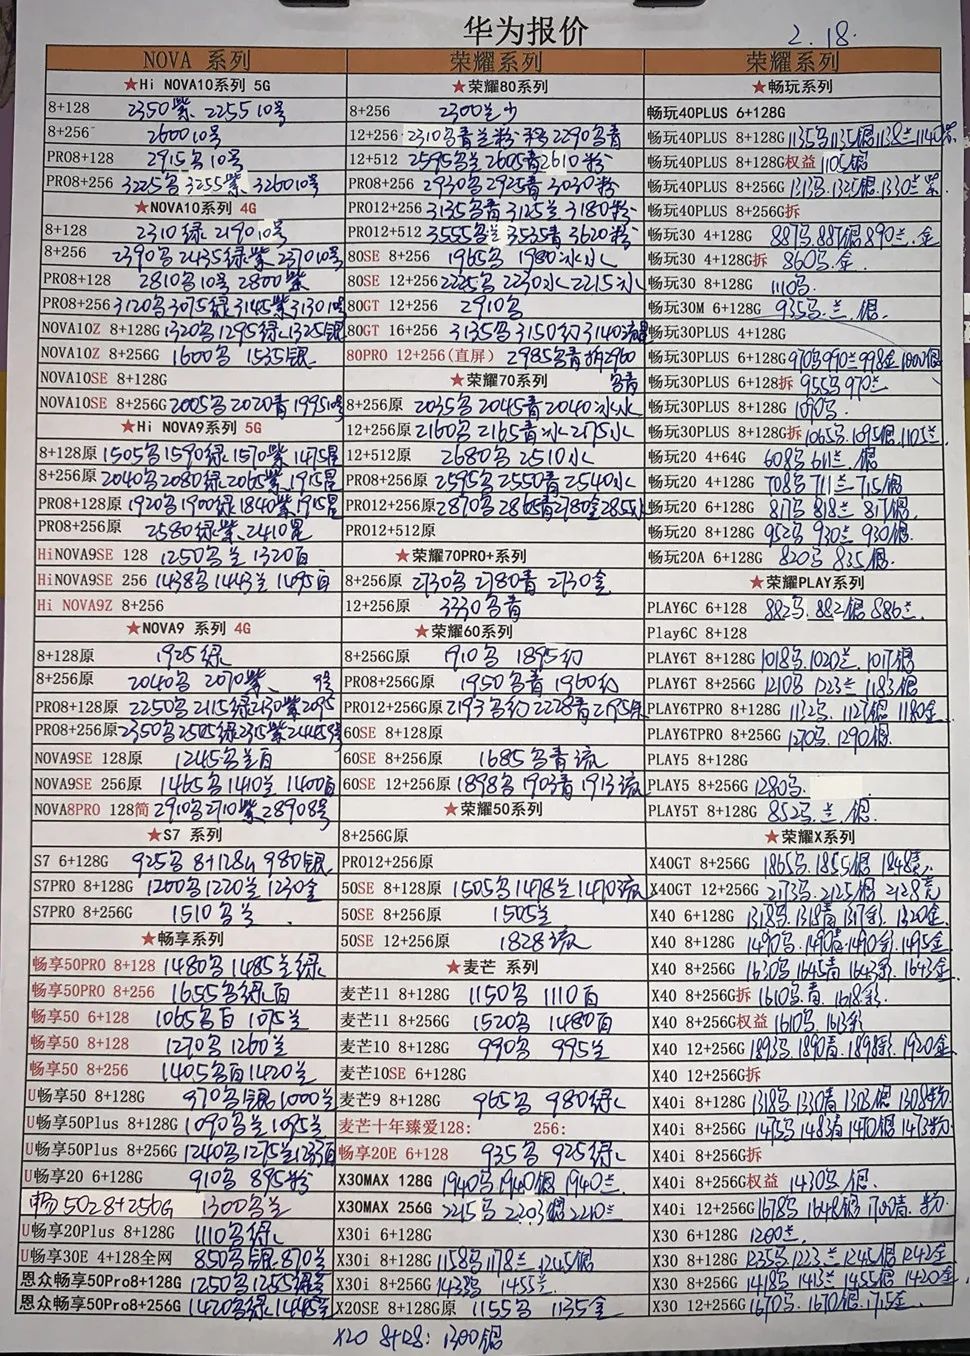 华为报价
2.18.
NOVA 系列
★Hi NOVA10系列 5G
8+128 2350紫 2255 10号
8+256 2600 10号
PRO8+128 2915黑 10号
PRO8+256 3225黑 3255紫 3260 10号
★NOVA10系列 4G
8+128 2310绿 2190 10号
8+256 2390黑 2435绿紫 2370 10号
PRO8+128 2810 10号 2800紫
PRO8+256 3120黑 3075绿 3145紫 3130 10号
NOVA10Z 8+128G 1320黑 1295绿 1325银
NOVA10Z 8+256G 1600黑 1535银
NOVA10SE 8+128G
NOVA10SE 8+256G 2005黑 2020青 1995 10号
★Hi NOVA9系列 5G
8+128原 1505黑 1590绿 1570紫 1475星
8+256原 2040黑 2080绿 2065紫 1915星
PRO8+128原 1920黑 1900绿 1840紫 1915星
PRO8+256原 2580绿紫 2410星
HiNOVA9SE 128 1250黑兰 1320百
HiNOVA9SE 256 1438黑 1443兰 1495百
Hi NOVA9Z 8+256
★NOVA9 系列 4G
8+128原 1925绿
8+256原 2040黑 2070紫 9号
PRO8+128原 2250黑 2115绿 2130紫 2095
PRO8+256原 2350黑 2505绿 2315紫 2445 9号
NOVA9SE 128原 1245黑兰百
NOVA9SE 256原 1465黑 1410兰 1400百
NOVA8PRO 128简 2910黑 2710紫 2890 8号
★S7 系列
S7 6+128G 925黑 8+128G 980银
S7PRO 8+128G 1200黑 1220兰 1230金
S7PRO 8+256G 1510黑兰
★畅享系列
畅享50PRO 8+128 1480黑 1485兰绿
畅享50PRO 8+256 1655黑绿百
畅享50 6+128 1065黑百 1075兰
畅享50 8+128 1270黑 1260兰
畅享50 8+256 1405黑百 1420兰
U畅享50 8+128G 970黑银 1000兰
U畅享50Plus 8+128G 1090黑兰 1095兰
U畅享50Plus 8+256G 1240黑 1275兰 1233百
U畅享20 6+128G 910黑 895粉
畅50Z 8+256G 1300黑兰
U畅享20Plus 8+128G 1110黑绿
U畅享30E 4+128全网 850黑银 870兰
恩众畅享50Pro8+128G 1250黑 1255绿兰
恩众畅享50Pro8+256G 1420黑绿 1445兰
荣耀系列
★荣耀80系列
8+256 2300兰少
12+256 2310黑青兰粉 2290黑青
12+512 2595黑兰 2605青 2610粉
PRO8+256 2930黑 2925青 3030粉
PRO12+256 3135黑青 3125兰 3180粉
PRO12+512 3555黑兰 3535青 3620粉
80SE 8+256 1965黑 1980冰水
80SE 12+256 2225黑 2230水 2215冰
80GT 12+256 2910黑
80GT 16+256 3135黑 3150幻 3140流星
80PRO 12+256(直屏) 2985黑青 拆2960
★荣耀70系列 黑青
8+256原 2035黑 2045青 2040冰水
12+256原 2160黑 2165青冰 2175水
12+512原 2680黑 2510水
PRO8+256原 2595黑 2550青 2540水
PRO12+256原 2870黑 2865青 2780金 2855水
PRO12+512原
★荣耀70PRO+系列
8+256原 2730黑 2780青 2730金
12+256原 3330黑青
★荣耀60系列
8+256G原 1910黑 1895幻
PRO8+256G原 1950黑青 1960幻
PRO12+256G原 2193黑幻 2228青
60SE 8+128原
60SE 8+256原 1685黑青流
60SE 12+256原 1898黑 1903青 1913流
★荣耀50系列
8+256G原
PRO12+256原
50SE 8+128原 1505黑 1478兰 1470流
50SE 8+256原 1505兰
50SE 12+256原 1828流
★麦芒 系列
麦芒11 8+128G 1150黑 1110百
麦芒11 8+256G 1520黑 1480百
麦芒10 8+128G 990黑 995兰
麦芒10SE 6+128G
麦芒9 8+128G 965黑 980绿
麦芒十年臻爱128: 256:
畅享20E 6+128 935黑 925绿
X30MAX 128G 1940黑 1940银 1940兰
X30MAX 256G 2215黑 2203银 2210兰
X30i 6+128G
X30i 8+128G 1158黑 1178兰 1245银
X30i 8+256G 1438黑 1455兰
X20SE 8+128G原 1155黑 1135金
X20 8+128: 1300银
荣耀系列
★畅玩系列
畅玩40PLUS 6+128G
畅玩40PLUS 8+128G 1135黑 1135银 1138兰 1140紫
畅玩40PLUS 8+128G权益 1105银
畅玩40PLUS 8+256G 1313黑 1325银 1330兰紫
畅玩40PLUS 8+256G拆
畅玩30 4+128G 887黑 887银 890兰.金
畅玩30 4+128G拆 860黑.金
畅玩30 8+128G 1110黑
畅玩30M 6+128G 935黑.兰.银
畅玩30PLUS 4+128G
畅玩30PLUS 6+128G 970黑 990兰 998金 1000银
畅玩30PLUS 6+128拆 955黑 970兰
畅玩30PLUS 8+128G 1090黑
畅玩30PLUS 8+128G拆 1065黑 1095银 1105兰
畅玩20 4+64G 608黑 611兰.银
畅玩20 4+128G 708黑 711兰 715银
畅玩20 6+128G 817黑 818兰 817银
畅玩20 8+128G 952黑 930兰 930银
畅玩20A 6+128G 820黑 835银
★荣耀PLAY系列
PLAY6C 6+128 882黑 882银 886兰
Play6C 8+128
PLAY6T 8+128G 1018黑 1020兰 1017银
PLAY6T 8+256G 1210黑 1223兰 1183银
PLAY6TPRO 8+128G 1132黑 1127银 1180金
PLAY6TPRO 8+256G 1270黑 1290银
PLAY5 8+128G
PLAY5 8+256G 1280黑
PLAY5T 8+128G 852黑.兰.银
★荣耀X系列
X40GT 8+256G 1865黑 1855银 1848竞
X40GT 12+256G 2173黑 2125银 2128竞
X40 6+128G 1318黑 1318青 1317彩 1320金
X40 8+128G 1490黑 1490青 1490彩 1495金
X40 8+256G 1630黑 1645青 1643彩 1643金
X40 8+256G拆 1610黑.青 1618彩
X40 8+256G权益 1610黑 1613彩
X40 12+256G 1893黑 1890青 1898彩 1920金
X40 12+256G拆
X40i 8+128G 1318黑 1330青 1303银 1308粉
X40i 8+256G 1475黑 1483青 1470银 1473粉
X40i 8+256G拆
X40i 8+256G权益 1430黑.银
X40i 12+256G 1678黑 1648银 1700青.粉
X30 6+128G 1200兰
X30 8+128G 1235黑 1223兰 1245银 1242金
X30 8+256G 1418黑 1413兰 1455银 1420金
X30 12+256G 1670黑 1670银 1715金